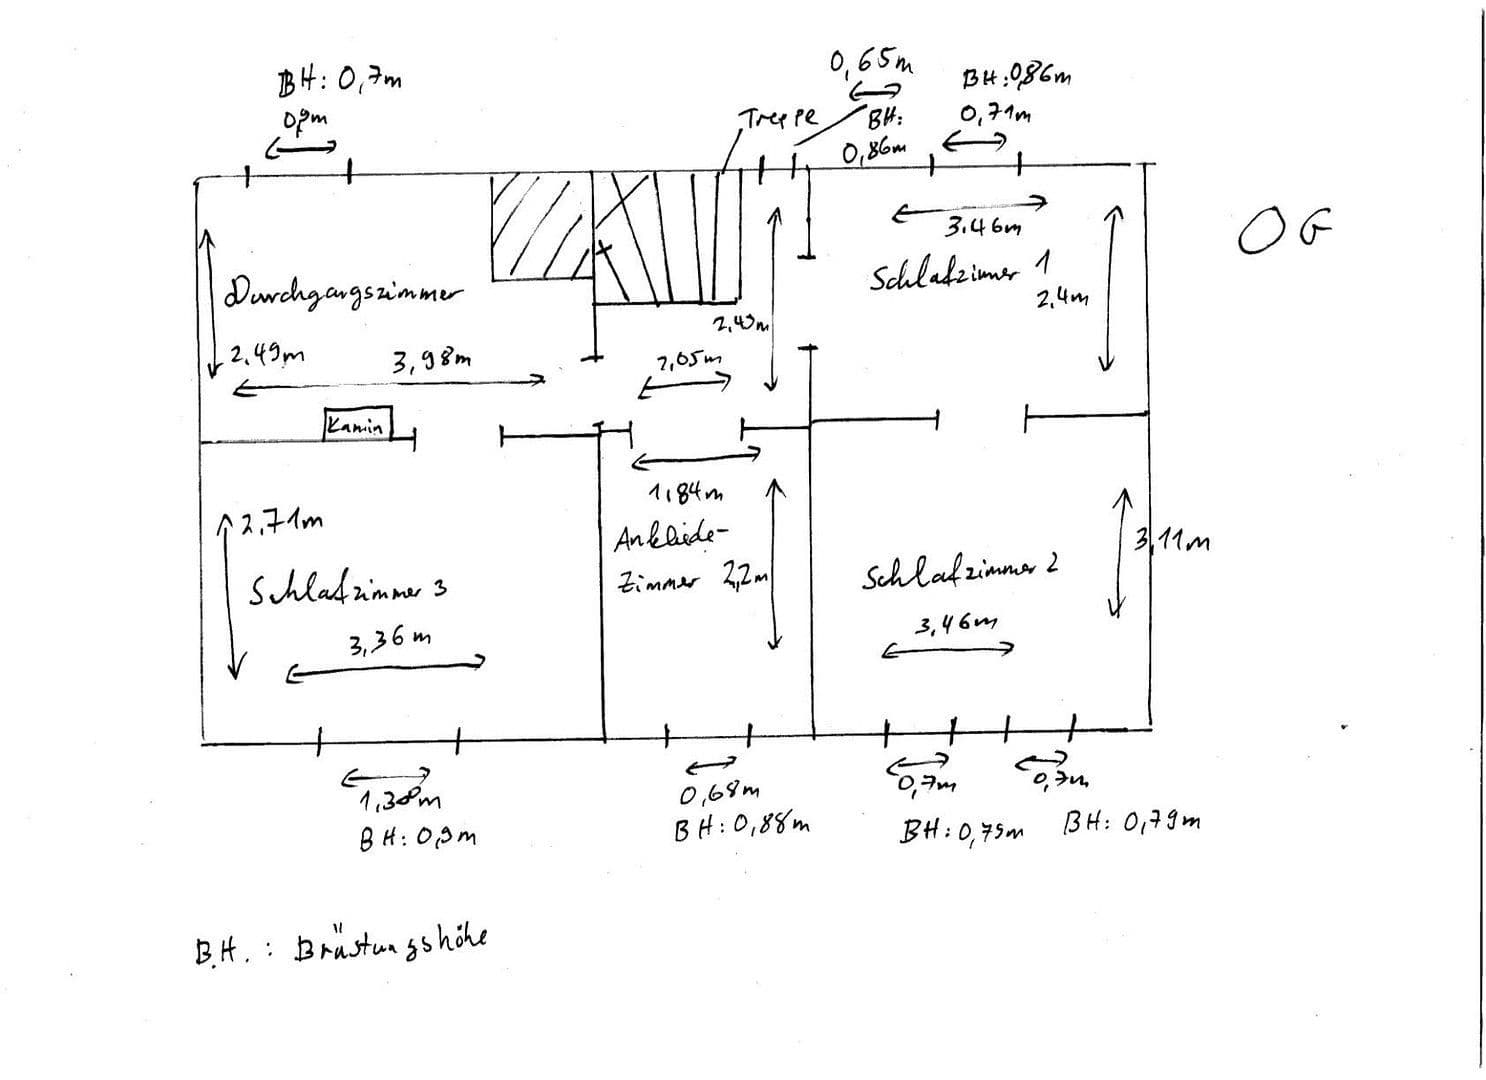 BH: 0,7m
0,9m
Treppe
0,65m
BH:
0,86m
BH: 0,86m
0,71m
OG
Durchgangszimmer
2,49m
3,98m
Kamin
2,05m
3.46m
Schlafzimmer 1
2,4m
2,71m
Schlafzimmer 3
3,36m
1,84m
Ankleide-
Zimmer 2,2m
Schlafzimmer 2
3,11m
3,46m
BH: 0,9m
0,68m
BH: 0,88m
0,7m
BH: 0,79m
0,7m
BH: 0,79m
B.H. : Brüstungshöhe